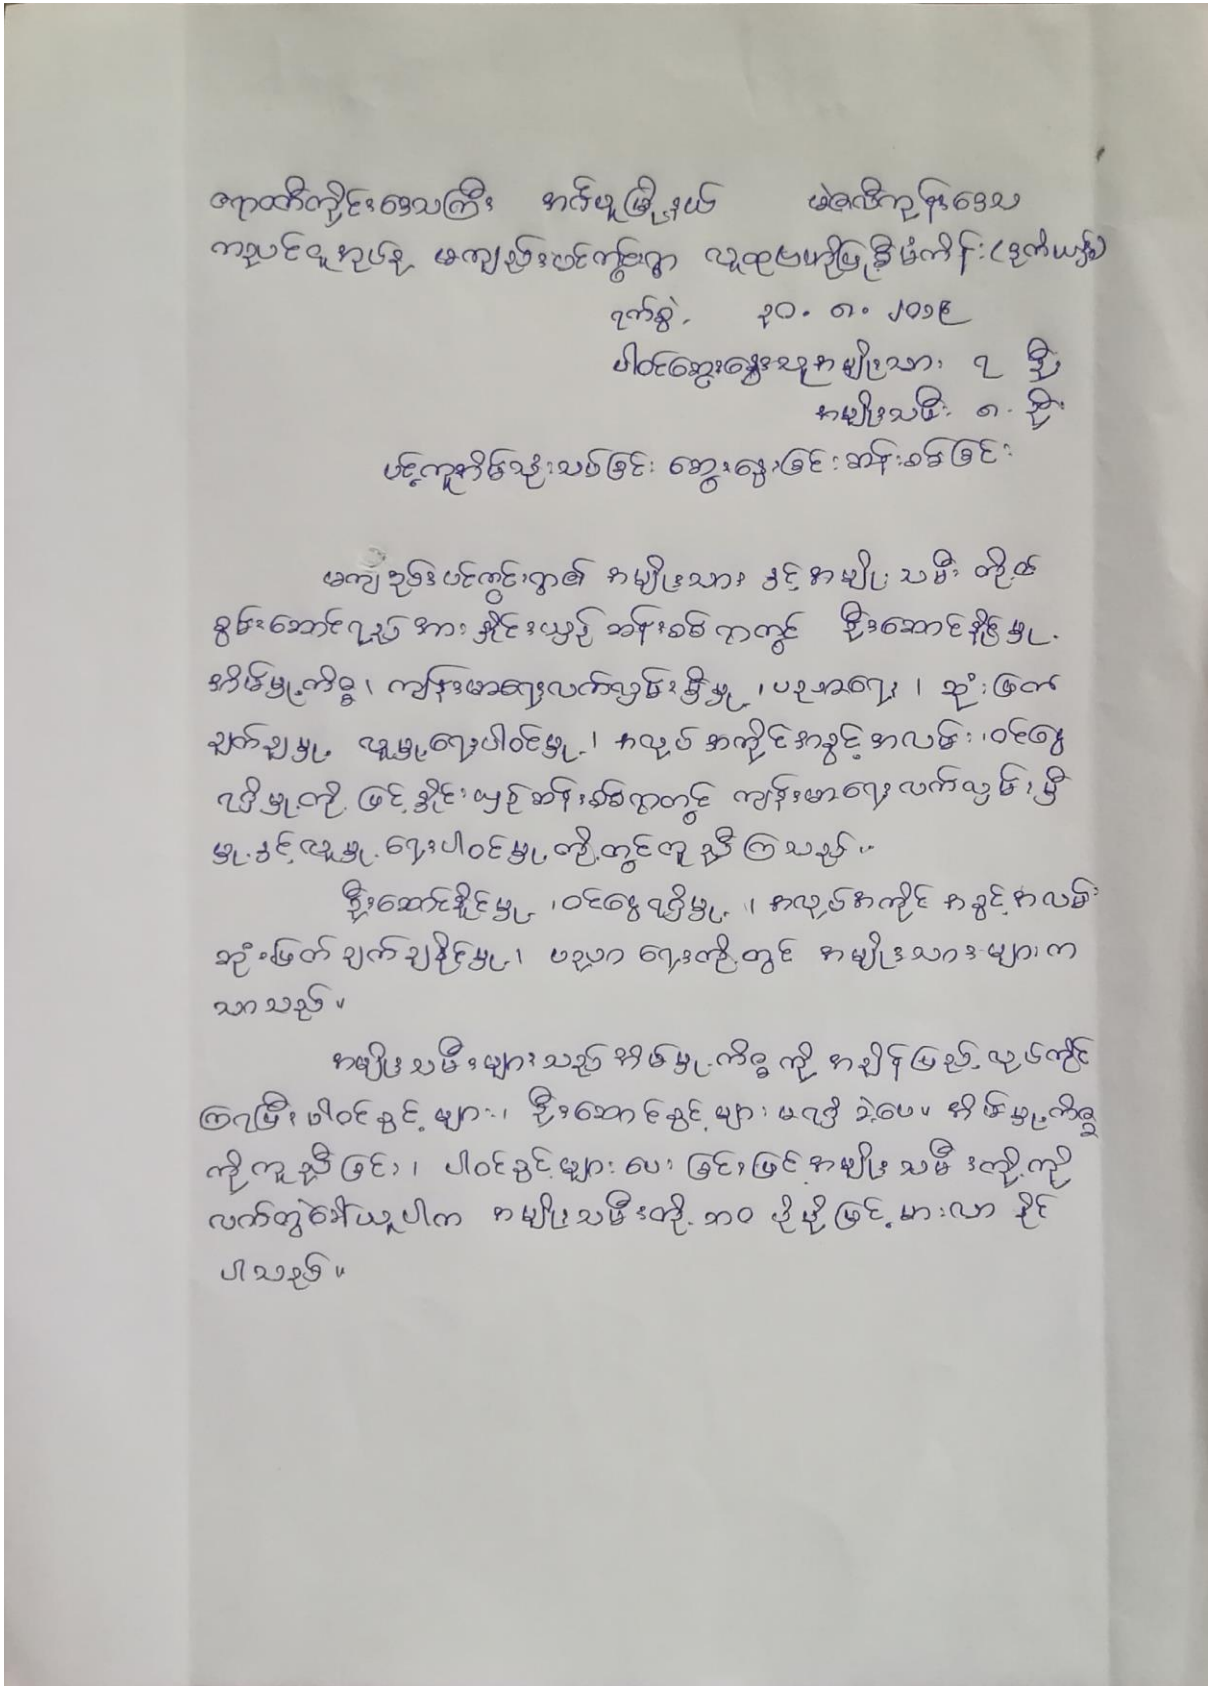 ဧရာဝတီတိုင်းဒေသကြီး အင်္ဂပူမြို့နယ် မဲဇလီကုန်းဒေသ
ကညင်ငူအုပ်စု မကျည်းပင်ကွင်းရွာ လူထုဗဟိုပြုစီမံကိန်း (ဒုတိယနှစ်)
ရက်စွဲ၊ ၃၀.၈.၂၀၁၉
ပါဝင်ဆွေးနွေးသူအမျိုးသား ၇ ဦး
အမျိုးသမီး ၈ ဦး
ပင့်ကူအိမ်သုံးသပ်ခြင်း ဆွေးနွေးခြင်း ဆန်းစစ်ခြင်း
မကျည်းပင်ကွင်းရွာ၏ အမျိုးသား နှင့် အမျိုးသမီး တို့၏
စွမ်းဆောင်ရည် အား နှိုင်းယှဉ် ဆန်းစစ်ရာတွင် ဦးဆောင်နိုင်မှု၊
အိမ်မှုကိစ္စ၊ ကျန်းမာရေးလက်လှမ်းမှီမှု၊ ပညာရေး၊ ဆုံးဖြတ်
ချက်ချမှု၊ လူမှုရေးပါဝင်မှု၊ အလုပ်အကိုင်အခွင့်အလမ်း၊ ဝင်ငွေ
ရရှိမှုတို့ ဖြင့် နှိုင်းယှဉ်ဆန်းစစ်ရာတွင် ကျန်းမာရေးလက်လှမ်းမှီ
မှုနှင့်လူမှုရေးပါဝင်မှုတို့တွင်တူညီကြသည်။
ဦးဆောင်နိုင်မှု၊ ဝင်ငွေရရှိမှု၊ အလုပ်အကိုင်အခွင့်အလမ်း
ဆုံးဖြတ်ချက်ချနိုင်မှု၊ ပညာရေးတို့တွင် အမျိုးသားများက
သာသည်။
အမျိုးသမီးများသည်အိမ်မှုကိစ္စကို အချိန်ပြည့်လုပ်ကိုင်
ကြရပြီး ပါဝင်ခွင့်များ၊ ဦးဆောင်ခွင့်များ မရှိခဲ့ပေ။ အိမ်မှုကိစ္စ
ကိုကူညီခြင်း၊ ပါဝင်ခွင့်များပေးခြင်းဖြင့်အမျိုးသမီးတို့ကို
လက်တွဲခေါ်ယူပါက အမျိုးသမီးတို့ဘဝ ပိုမိုမြင့်မားလာနိုင်
ပါသည်။